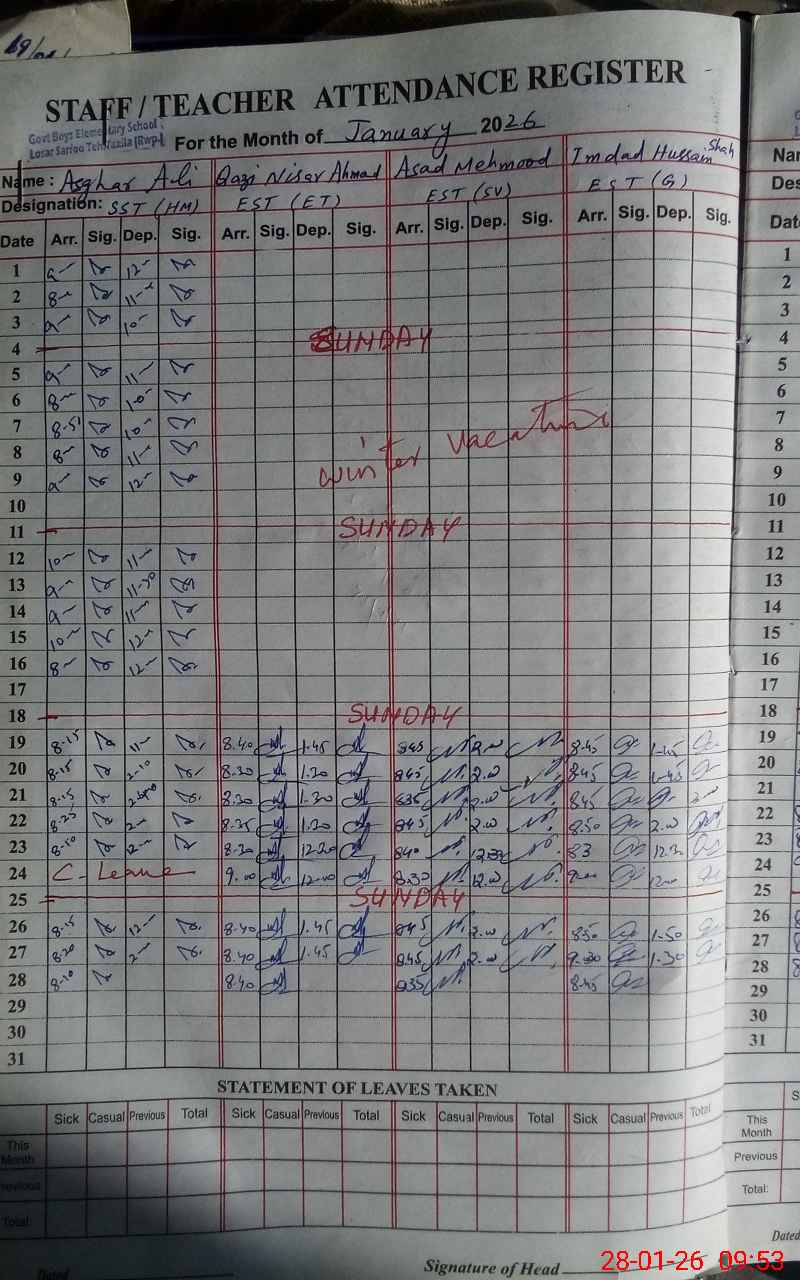 STAFF / TEACHER ATTENDANCE REGISTER
Govt Boys Elementary School
Losar Sarfoo Teh Taxila (Rwp)
For the Month of January 2026
Name : Asghar Ali Qazi Nisar Ahmad Asad Mehmood Imdad Hussain Shah
Designation: SST (HM) EST (ET) EST (SV) EST (G)
Date Arr. Sig. Dep. Sig. Arr. Sig. Dep. Sig. Arr. Sig. Dep. Sig. Arr. Sig. Dep. Sig.
1 9- 12-
2 8- 11-
3 9- 10-
4 SUNDAY
5 9- 11-
6 8- 10-
7 10-
8 8- 11-
9 9- 12-
winter vacation
10
11 SUNDAY
12 10- 11-
13 9- 11-30
14 9- 11-
15 10- 12-
16 8- 12-
17
18 SUNDAY
19 8-15 11- 8.40 1.45 845 2.00 8.45 1.45
20 8-15 2-10 8.30 1.30 845 2.00 8.45 1.45
21 8-15 8.30 1.30 835 2.00 8.45
22 8-25 2- 8.35 1.30 845 2.00 8.50 2.00
23 8-10 2- 8.30 12.20 840 12.30
24 C-Leave 9.00 12.00 8.30 12.00
25 SUNDAY
26 8-15 12- 8.40 1.45 845 2.00 8.50 1.50
27 8-20 2- 8.40 1.45 845 2.00 9.00 1.30
28 8-10 8.40 835 8.45
29
30
31
STATEMENT OF LEAVES TAKEN
Sick Casual Previous Total Sick Casual Previous Total Sick Casual Previous Total Sick Casual Previous Total
This Month
Previous
Total:
Dated
Signature of Head
Date
1
2
3
4
5
6
7
8
9
10
11
12
13
14
15
16
17
18
19
20
21
22
23
24
25
26
27
28
29
30
31
This Month
Previous
Total:
Dated
28-01-26 09:53